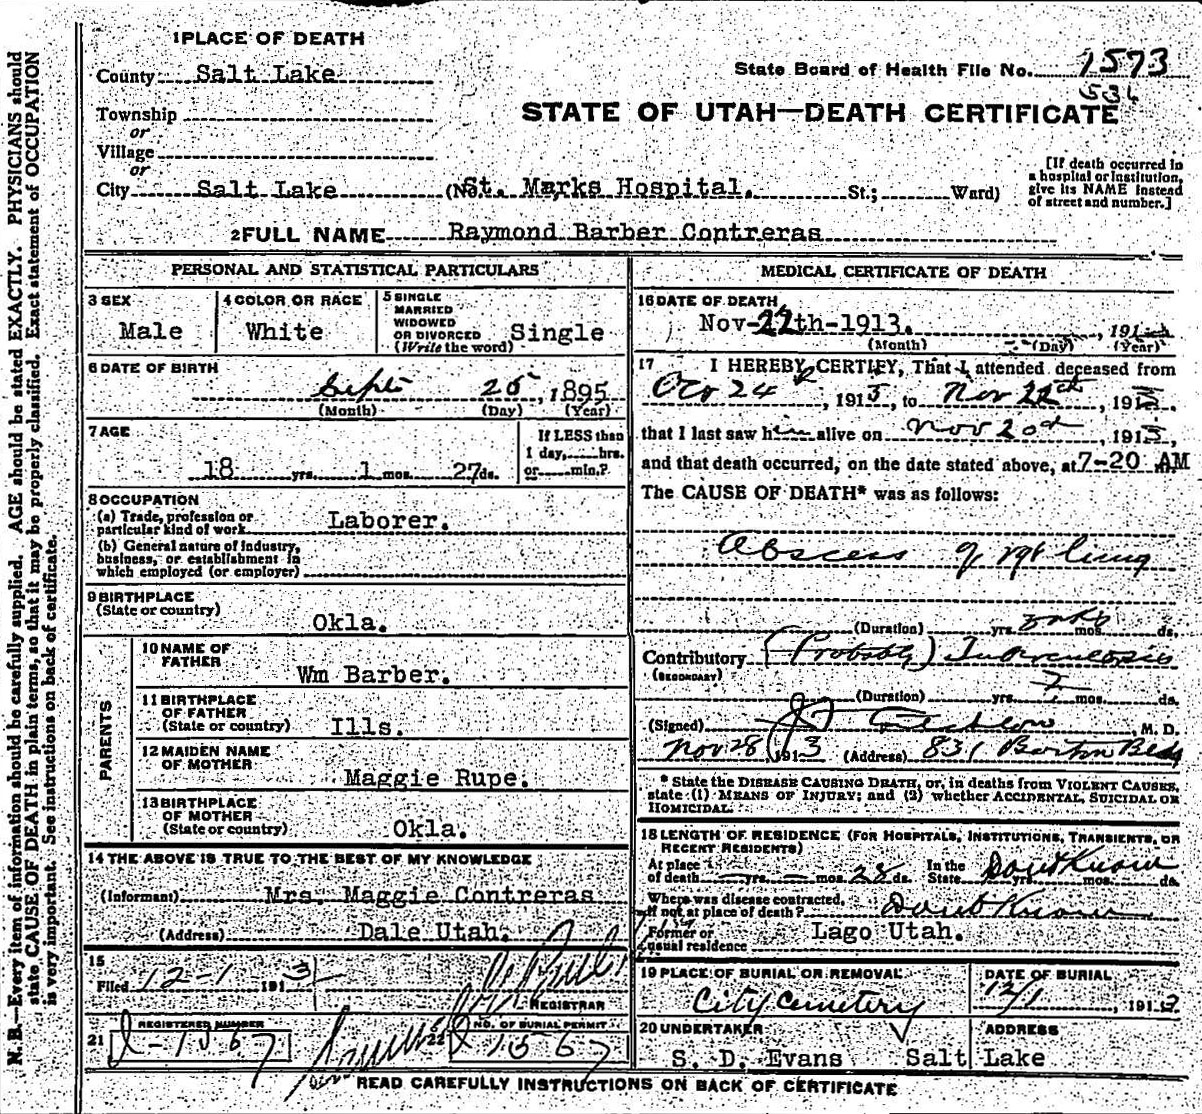 1 PLACE OF DEATH
County Salt Lake
State Board of Health File No. 1573
534
Township
or
Village
or
STATE OF UTAH—DEATH CERTIFICATE
City Salt Lake (No. St. Marks Hospital. St.; Ward)
[If death occurred in a hospital or institution, give its NAME instead of street and number.]
2 FULL NAME Raymond Barber Contreras
PERSONAL AND STATISTICAL PARTICULARS
3 SEX
Male
4 COLOR OR RACE
White
5 SINGLE
MARRIED
WIDOWED
OR DIVORCED
(Write the word) Single
6 DATE OF BIRTH
Sept 25, 1895
(Month) (Day) (Year)
7 AGE
18 yrs. 1 mos. 27 ds.
If LESS than
1 day, hrs.
or min.?
8 OCCUPATION
(a) Trade, profession or
particular kind of work Laborer.
(b) General nature of industry,
business, or establishment in
which employed (or employer)
9 BIRTHPLACE
(State or country)
Okla.
PARENTS
10 NAME OF
FATHER
Wm Barber.
11 BIRTHPLACE
OF FATHER
(State or country) Ills.
12 MAIDEN NAME
OF MOTHER
Maggie Rupe.
13 BIRTHPLACE
OF MOTHER
(State or country) Okla.
14 THE ABOVE IS TRUE TO THE BEST OF MY KNOWLEDGE
(Informant) Mrs. Maggie Contreras
(Address) Dale Utah.
15
Filed 12-1 1913
REGISTRAR
21 REGISTERED NUMBER
1567
22 NO. OF BURIAL PERMIT
1567
MEDICAL CERTIFICATE OF DEATH
16 DATE OF DEATH
Nov- th-1913. , 191
(Month) (Day) (Year)
17 I HEREBY CERTIFY, That I attended deceased from
24, 1913, to Nov , 1913,
that I last saw him alive on Nov 20th, 1913,
and that death occurred, on the date stated above, at 7-20 AM
The CAUSE OF DEATH* was as follows:
Abscess of rgt lung
(Duration) yrs. mos. ds.
Contributory (Probably) Tuberculosis
(SECONDARY)
(Duration) yrs. mos. ds.
(Signed) M. D.
Nov 28 1913 (Address) 831 Boston Bldg
* State the DISEASE CAUSING DEATH, or, in deaths from VIOLENT CAUSES,
state (1) MEANS OF INJURY; and (2) whether ACCIDENTAL, SUICIDAL OR
HOMICIDAL.
18 LENGTH OF RESIDENCE (FOR HOSPITALS, INSTITUTIONS, TRANSIENTS, OR
RECENT RESIDENTS)
At place
of death yrs. mos. 28 ds. In the
State Dont Know yrs. mos. ds.
Where was disease contracted,
if not at place of death? Dont Know
Former or
usual residence Lago Utah.
19 PLACE OF BURIAL OR REMOVAL
City Cemetery
DATE OF BURIAL
12/1 1913
20 UNDERTAKER
S. D. Evans
ADDRESS
Salt Lake
READ CAREFULLY INSTRUCTIONS ON BACK OF CERTIFICATE
N. B.—Every item of information should be carefully supplied. AGE should be stated EXACTLY. PHYSICIANS should
state CAUSE OF DEATH in plain terms, so that it may be properly classified. Exact statement of OCCUPATION
is very important. See instructions on back of certificate.